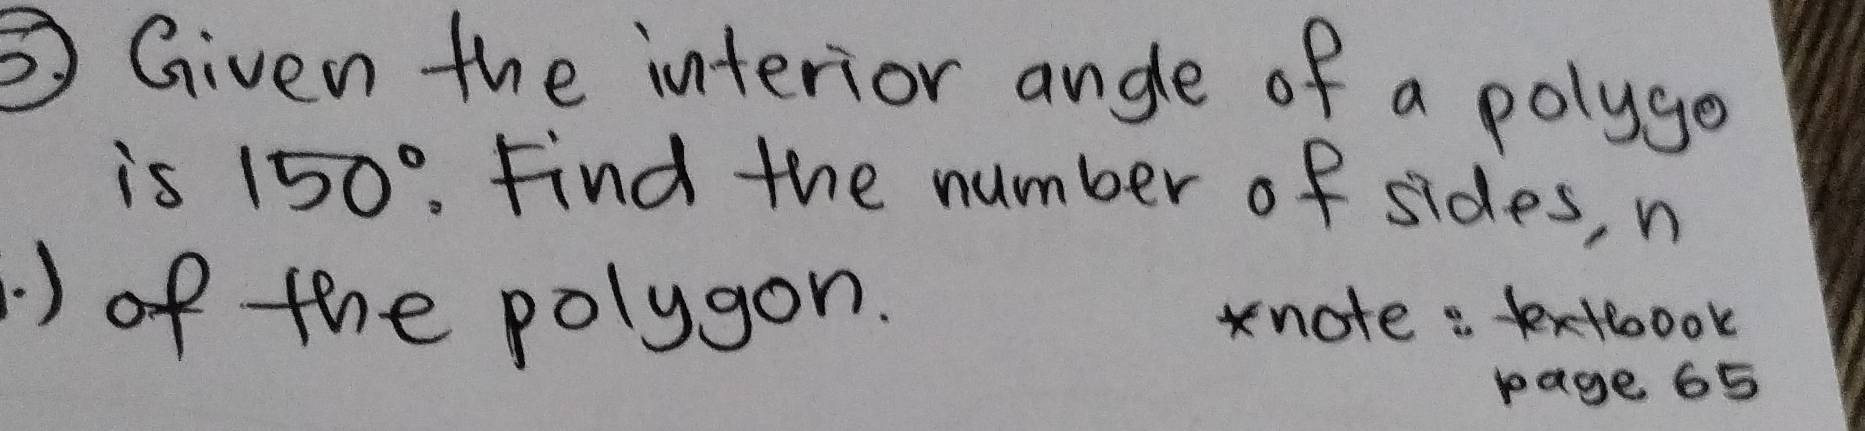 5.) Given the interior angle of a polygo
is 150°. Find the number of sides, n
.) of the polygon.
*note : textbook
page 65